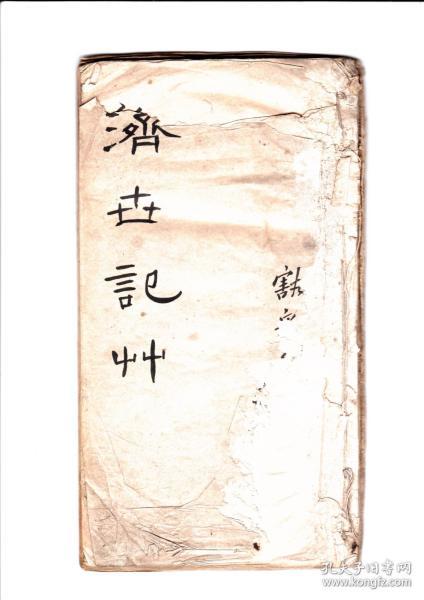 濟世記艸
孔夫子旧书网
www.kongfz.com